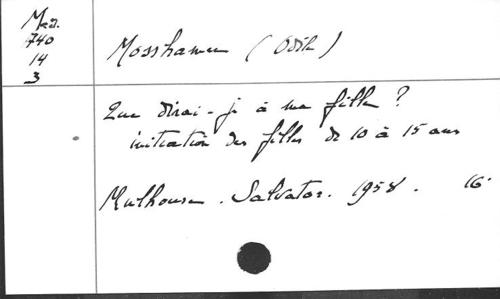 Med.
740
14
3
Mosshamer (Odile)
Que dirai-je à ma fille ?
initiation des filles de 10 à 15 ans
Mulhouse. Salvator. 1958. 16°